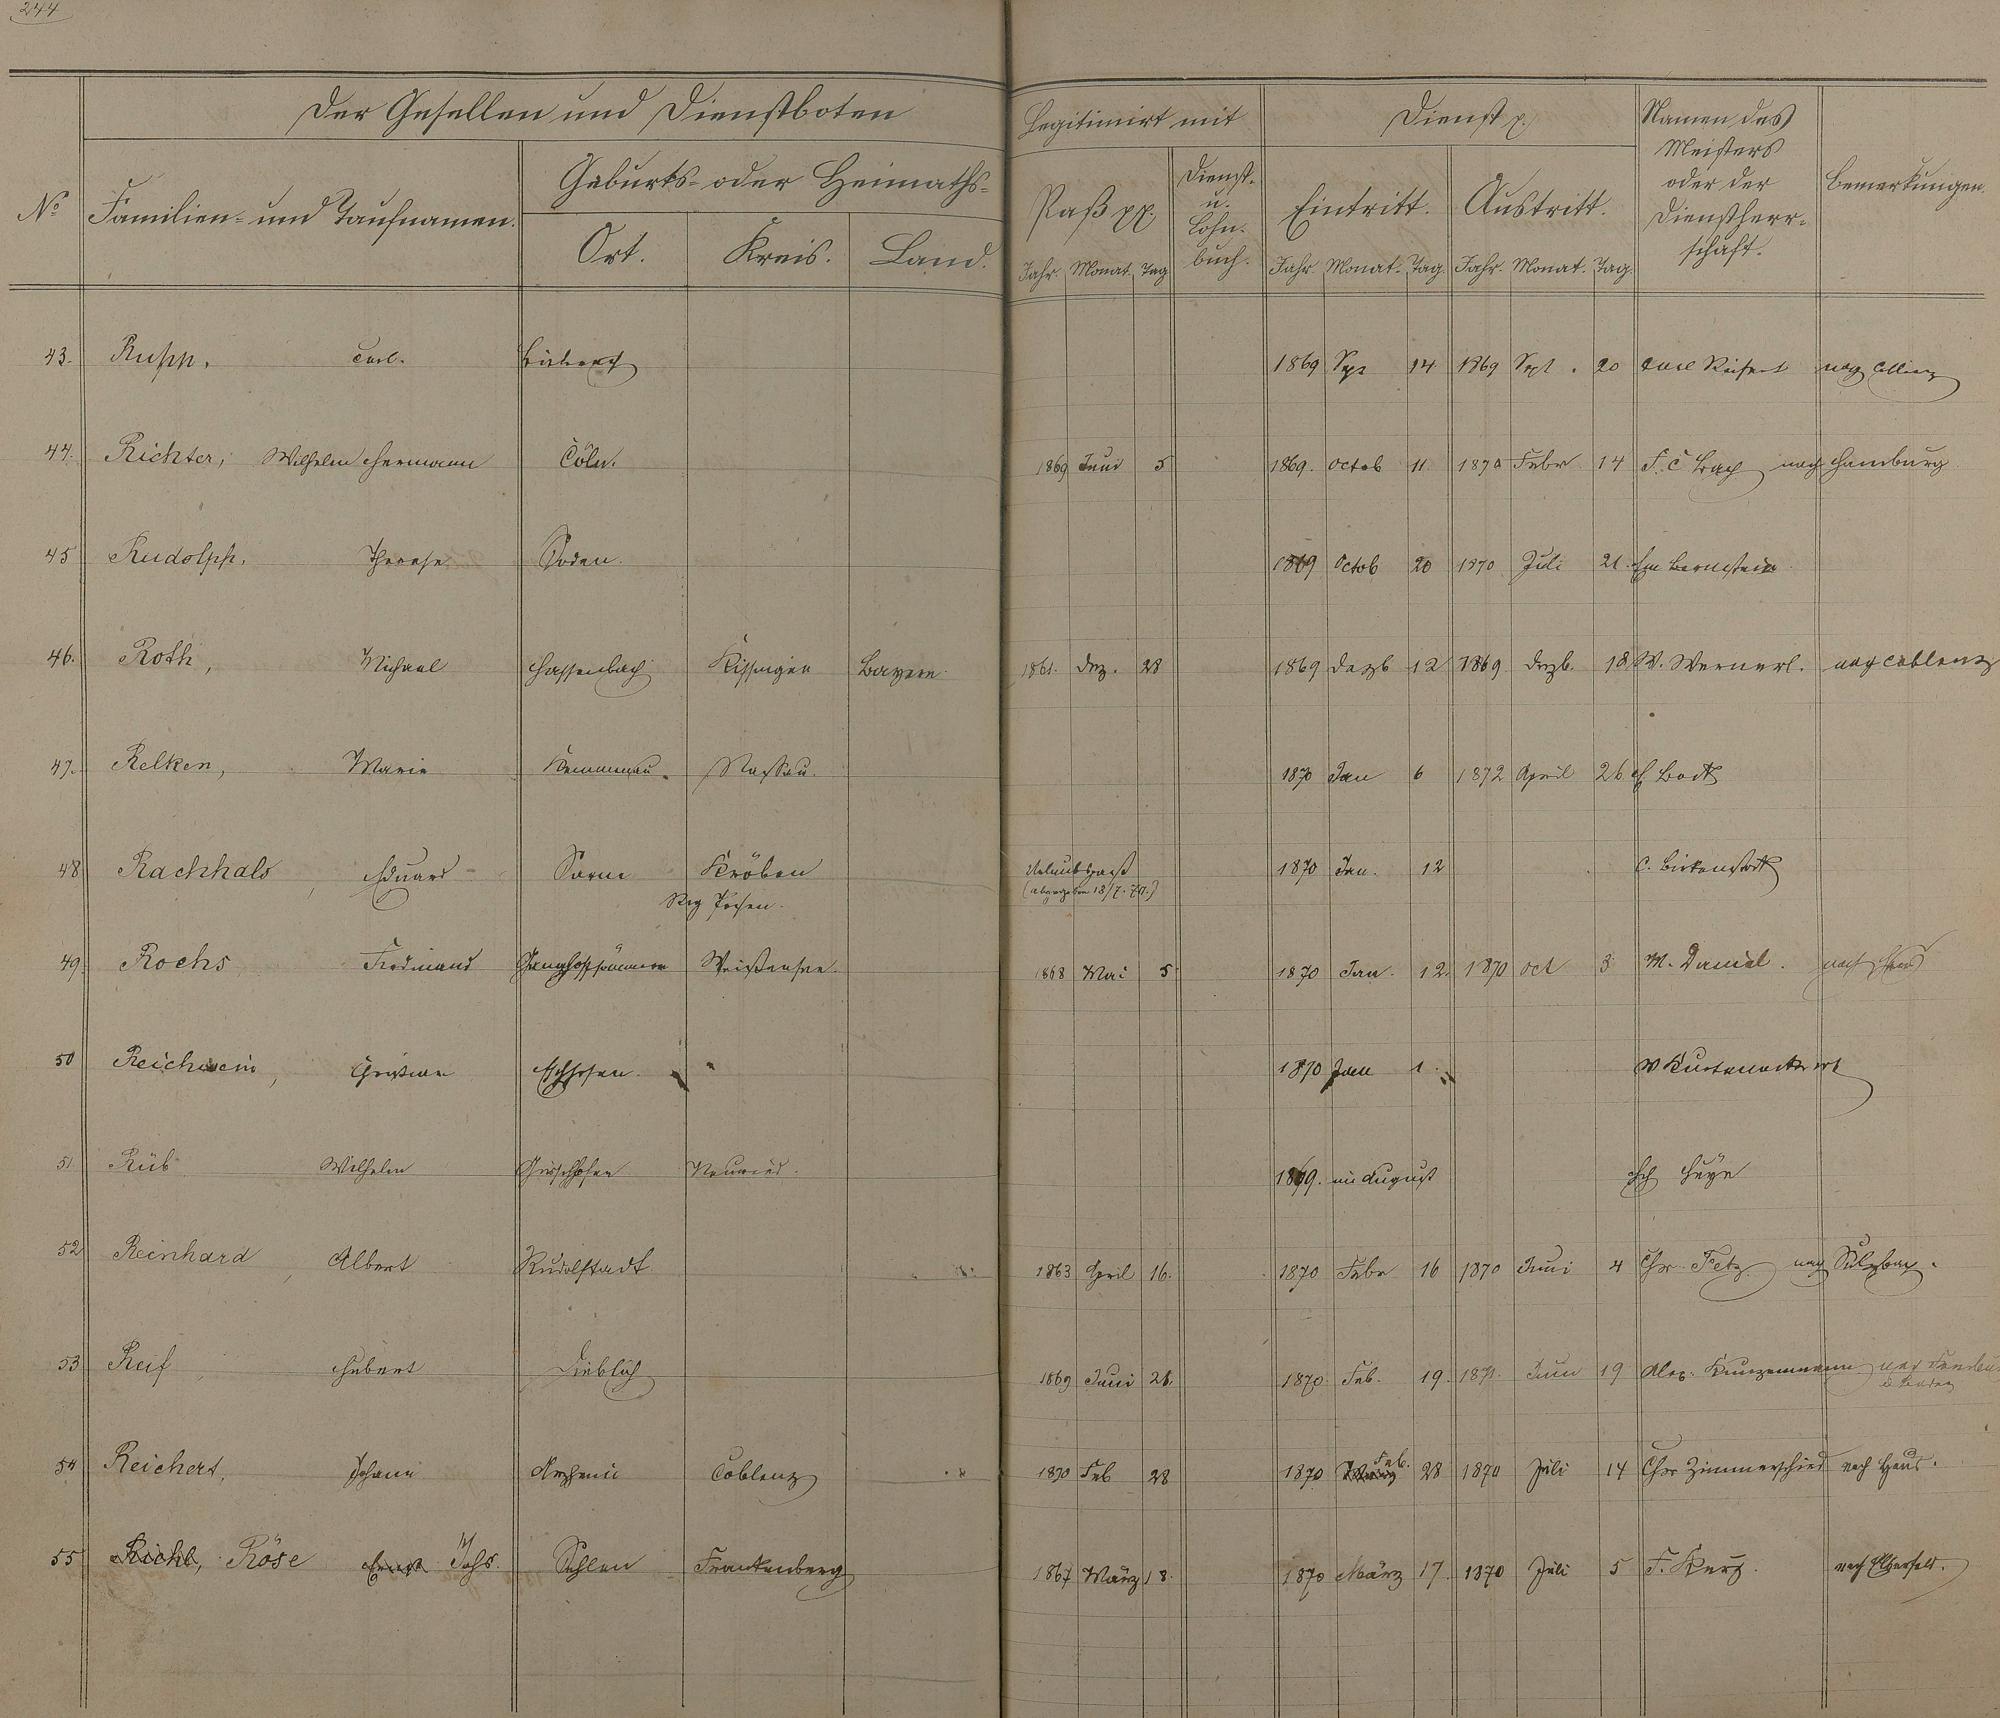 244
Der Gesellen und Dienstboten
Legitimirt mit
Dienst p.
Namen des
Meisters
oder der
Dienstherr-
schaft.
Bemerkungen.
No
Familien- und Taufnamen.
Geburts- oder Heimaths-
Ort. Kreis. Land.
Paß pp.
Dienst-
u.
Lohn-
buch.
Eintritt. Austritt.
Jahr. Monat. Tag Jahr. Monat. Tag. Jahr. Monat. Tag.
43. Rupp, Carl. Biebrich 1869 Sep 14 1869 Sept. 20 Carl nach
44. Richter, Wilhelm Hermann Cöln. 1869 Juni 5 1869. Octob 11 1870 Febr 14 F. C nach Hamburg
45 Rudolph, Therese Soden. 1869 Octob 20 1870 Juli 21. Bernstein
46. Roth, Michael Hassenbach Kissingen Bayern 1861. Dez. 28 1869 Dezb 12 1869. Dezb. 18 W. Werner nach Coblenz
47. Relken, Marie Kemmenau. Nassau. 1870 Jan 6 1872 April 26
48 Rachhals, Eduard Sarne Kröben Urlaubspaß 1870 Jan. 12 C. Birkenstock
Reg Posen. (abgegeben 13/7. 70.)
49. Rochs Ferdinand Weißensee. 1868 Mai 5 1870 Jan. 12. 1870 Oct 3 M. Daniel. nach Haus
50 Reichwein, Christian Eschhofen. 1870 Jan 1.
51. Rüb Wilhelm Neuwied. 1869. im August
52 Reinhard, Albert Rudolstadt 1863 April 16. 1870 Febr 16 1870 Juni 4 Chr. Fetz nach Sulzbach.
53 Reif, Hubert Dieblich 1869 Juni 28. 1870. Feb. 19. 1871. Juni 19 Alex. Kunzemann nach
54 Reichert, Johann Arzheim Coblenz 1870 Feb 28 1870 März Feb. 28 1870 Juli 14 Chr Zimmerschied nach Haus.
55 Richl, Röse Ernst Johs. Sehlen Frankenberg 1867 März 18. 1870 März 17. 1870 Juli 5 F. nach Elberfeld.